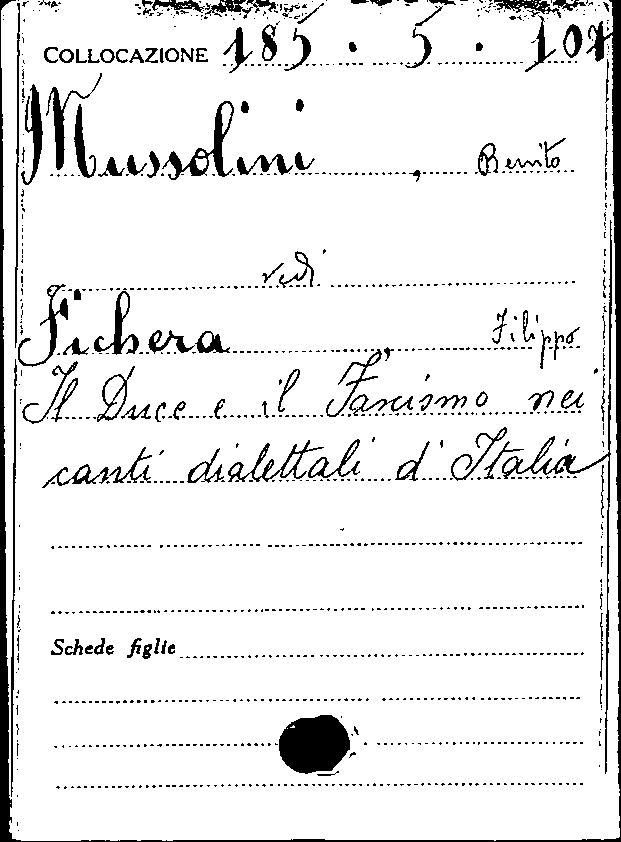 COLLOCAZIONE 185 . 5 . 107
Mussolini , Benito
vedi
Fichera , Filippo
Il Duce e il Fascismo nei
canti dialettali d'Italia
Schede figlie